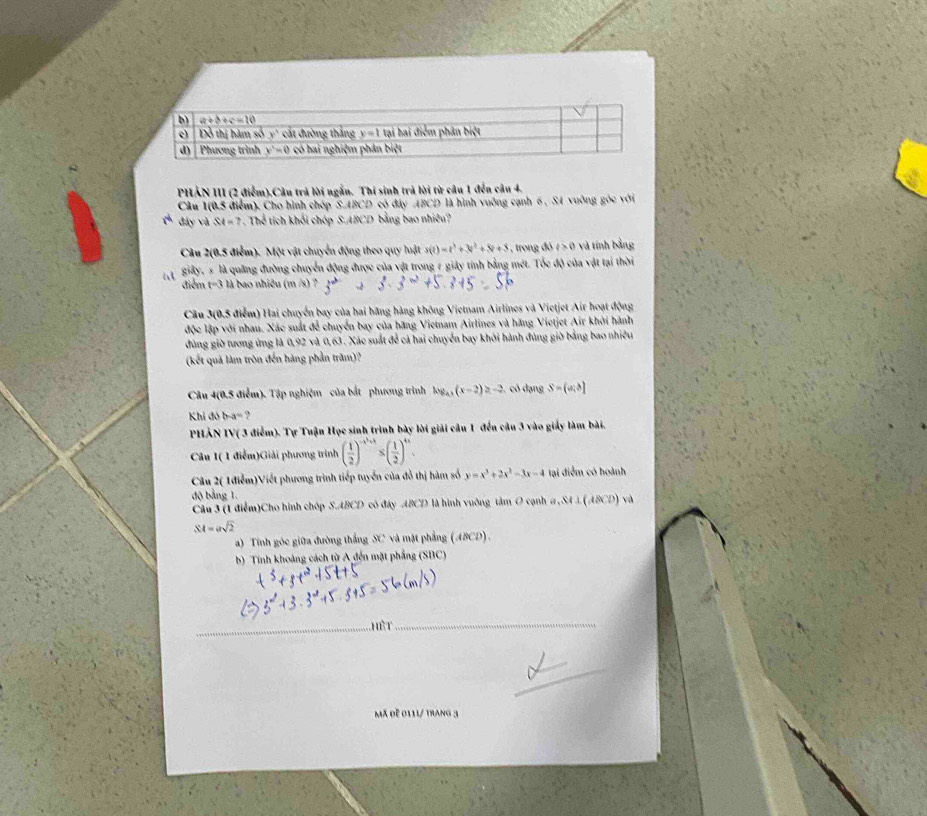 b) a+b+c=10
c) Đồ thị hàm số y' cắt đường thẳng y=1 tại hai điểm phân biệt
d) Phương trình y'=0 có hai nghiệm phân biệt
PHẦN III (2 điểm).Câu trả lời ngắn. Thí sinh trả lời từ câu 1 đến câu 4.
Câu 1(0.5 điểm). Cho hình chóp S.ABCD có đáy ABCD là hình vuông cạnh 6, SA vuông góc với
đáy và SA=7. Thể tích khối chóp S.ABCD bằng bao nhiêu?
Câu 2(0.5 điểm). Một vật chuyển động theo quy luật s(t)=t³+3t²+5t+5, trong đó t>0 và tính bằng
giây, s là quãng đường chuyển động được của vật trong t giây tính bằng mét. Tốc độ của vật tại thời
điểm t=3 là bao nhiêu (m/s)? + 3.3² +5.3+5 = 56
Câu 3(0.5 điểm) Hai chuyến bay của hai hãng hàng không Vietnam Airlines và Vietjet Air hoạt động
độc lập với nhau. Xác suất để chuyến bay của hãng Vietnam Airlines và hãng Vietjet Air khởi hành
đúng giờ tương ứng là 0,92 và 0,63. Xác suất để cả hai chuyến bay khởi hành đúng giờ bằng bao nhiêu
(kết quả làm tròn đến hàng phần trăm)?
Câu 4(0.5 điểm). Tập nghiệm của bất phương trình log₀,₅(x-2)≥-2. có dạng S=(a;b]
Khi đó b-a=?
PHẦN IV( 3 điểm). Tự Tuận Học sinh trình bày lời giải câu 1 đến câu 3 vào giấy làm bài.
Câu 1( 1 điểm)Giải phương trình
Câu 2( 1điểm)Viết phương trình tiếp tuyến của đồ thị hàm số y=x³+2x²-3x-4 tại điểm có hoành
độ bằng 1.
Câu 3 (1 điểm)Cho hình chóp S.ABCD có đáy ABCD là hình vuông tâm O cạnh a,SA⊥(ABCD) và
SA=a√2
a) Tính góc giữa đường thẳng SC và mặt phẳng (ABCD).
b) Tính khoảng cách từ A đến mặt phẳng (SBC)
t³+3t²+5t+5
+3.3²+5.3+5 = 56(m/s)
HẾT
MÃ ĐỀ 0111/ TRANG 3